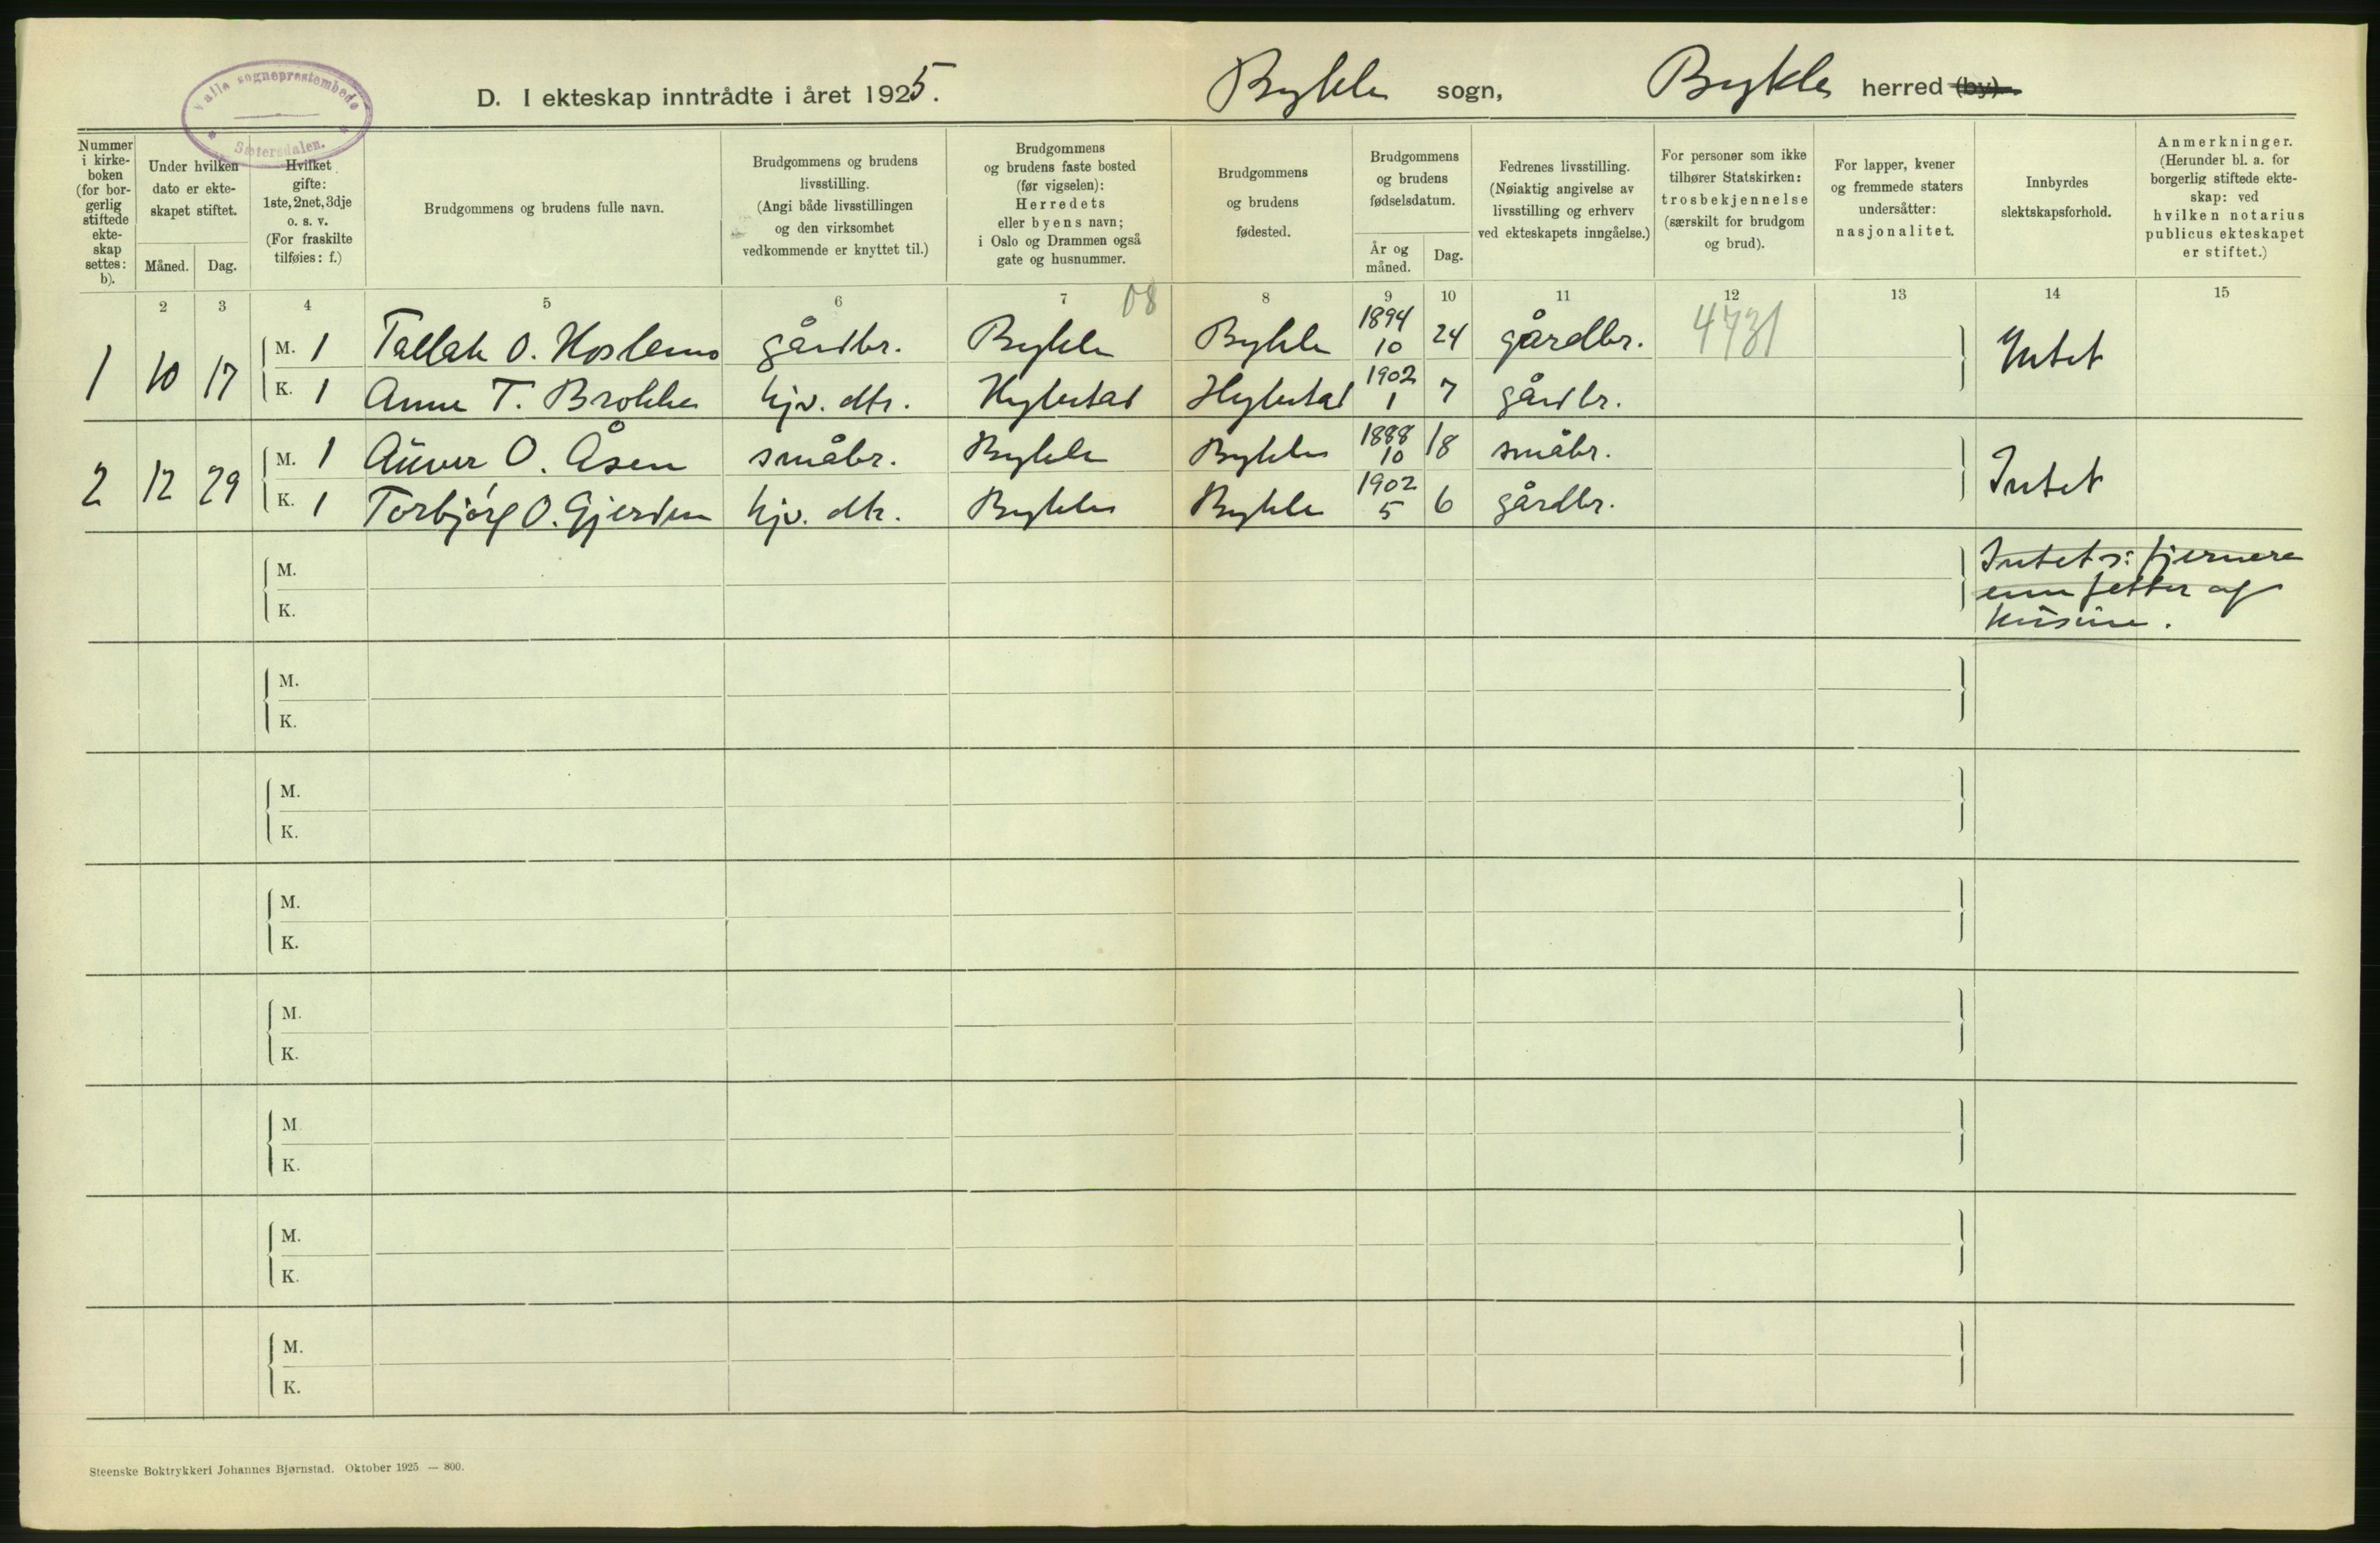 Valle sogneprestembede
Sætersdalen.
D. I ekteskap inntrådte i året 1925. Bykle sogn, Bykle herred (by).
Nummer i kirke-boken (for bor-gerlig stiftede ekte-skap settes: b).
Under hvilken dato er ekte-skapet stiftet.
Måned. Dag.
Hvilket gifte: 1ste, 2net, 3dje o. s. v. (For fraskilte tilføies: f.)
Brudgommens og brudens fulle navn.
Brudgommens og brudens livsstilling. (Angi både livsstillingen og den virksomhet vedkommende er knyttet til.)
Brudgommens og brudens faste bosted (før vigselen): Herredets eller byens navn; i Oslo og Drammen også gate og husnummer.
Brudgommens og brudens fødested.
Brudgommens og brudens fødselsdatum.
År og måned. Dag.
Fedrenes livsstilling. (Nøiaktig angivelse av livsstilling og erhverv ved ekteskapets inngåelse.)
For personer som ikke tilhører Statskirken: trosbekjennelse (særskilt for brudgom og brud).
For lapper, kvener og fremmede staters undersåtter: nasjonalitet.
Innbyrdes slektskapsforhold.
Anmerkninger. (Herunder bl. a. for borgerlig stiftede ekte-skap: ved hvilken notarius publicus ekteskapet er stiftet.)
2 3 4 5 6 7 08 8 9 10 11 12 13 14 15
4731
1 10 17 M. 1 Tallak O. Hoslemo gårdbr. Bykle Bykle 1894 10 24 gårdbr. Intet
K. 1 Anne T. Brokke hjv. dtr. Hylestad Hylestad 1902 1 7 gårdbr.
2 12 29 M. 1 Auver O. Åsen småbr. Bykle Bykle 1888 10 18 småbr. Intet
K. 1 Torbjørg O. Gjerden hjv. dtr. Bykle Bykle 1902 5 6 gårdbr.
M. Intet s: fjernere
K. enn fetter og
kusine.
M.
K.
M.
K.
M.
K.
M.
K.
M.
K.
M.
K.
M.
K.
Steenske Boktrykkeri Johannes Bjørnstad. Oktober 1925 — 800.